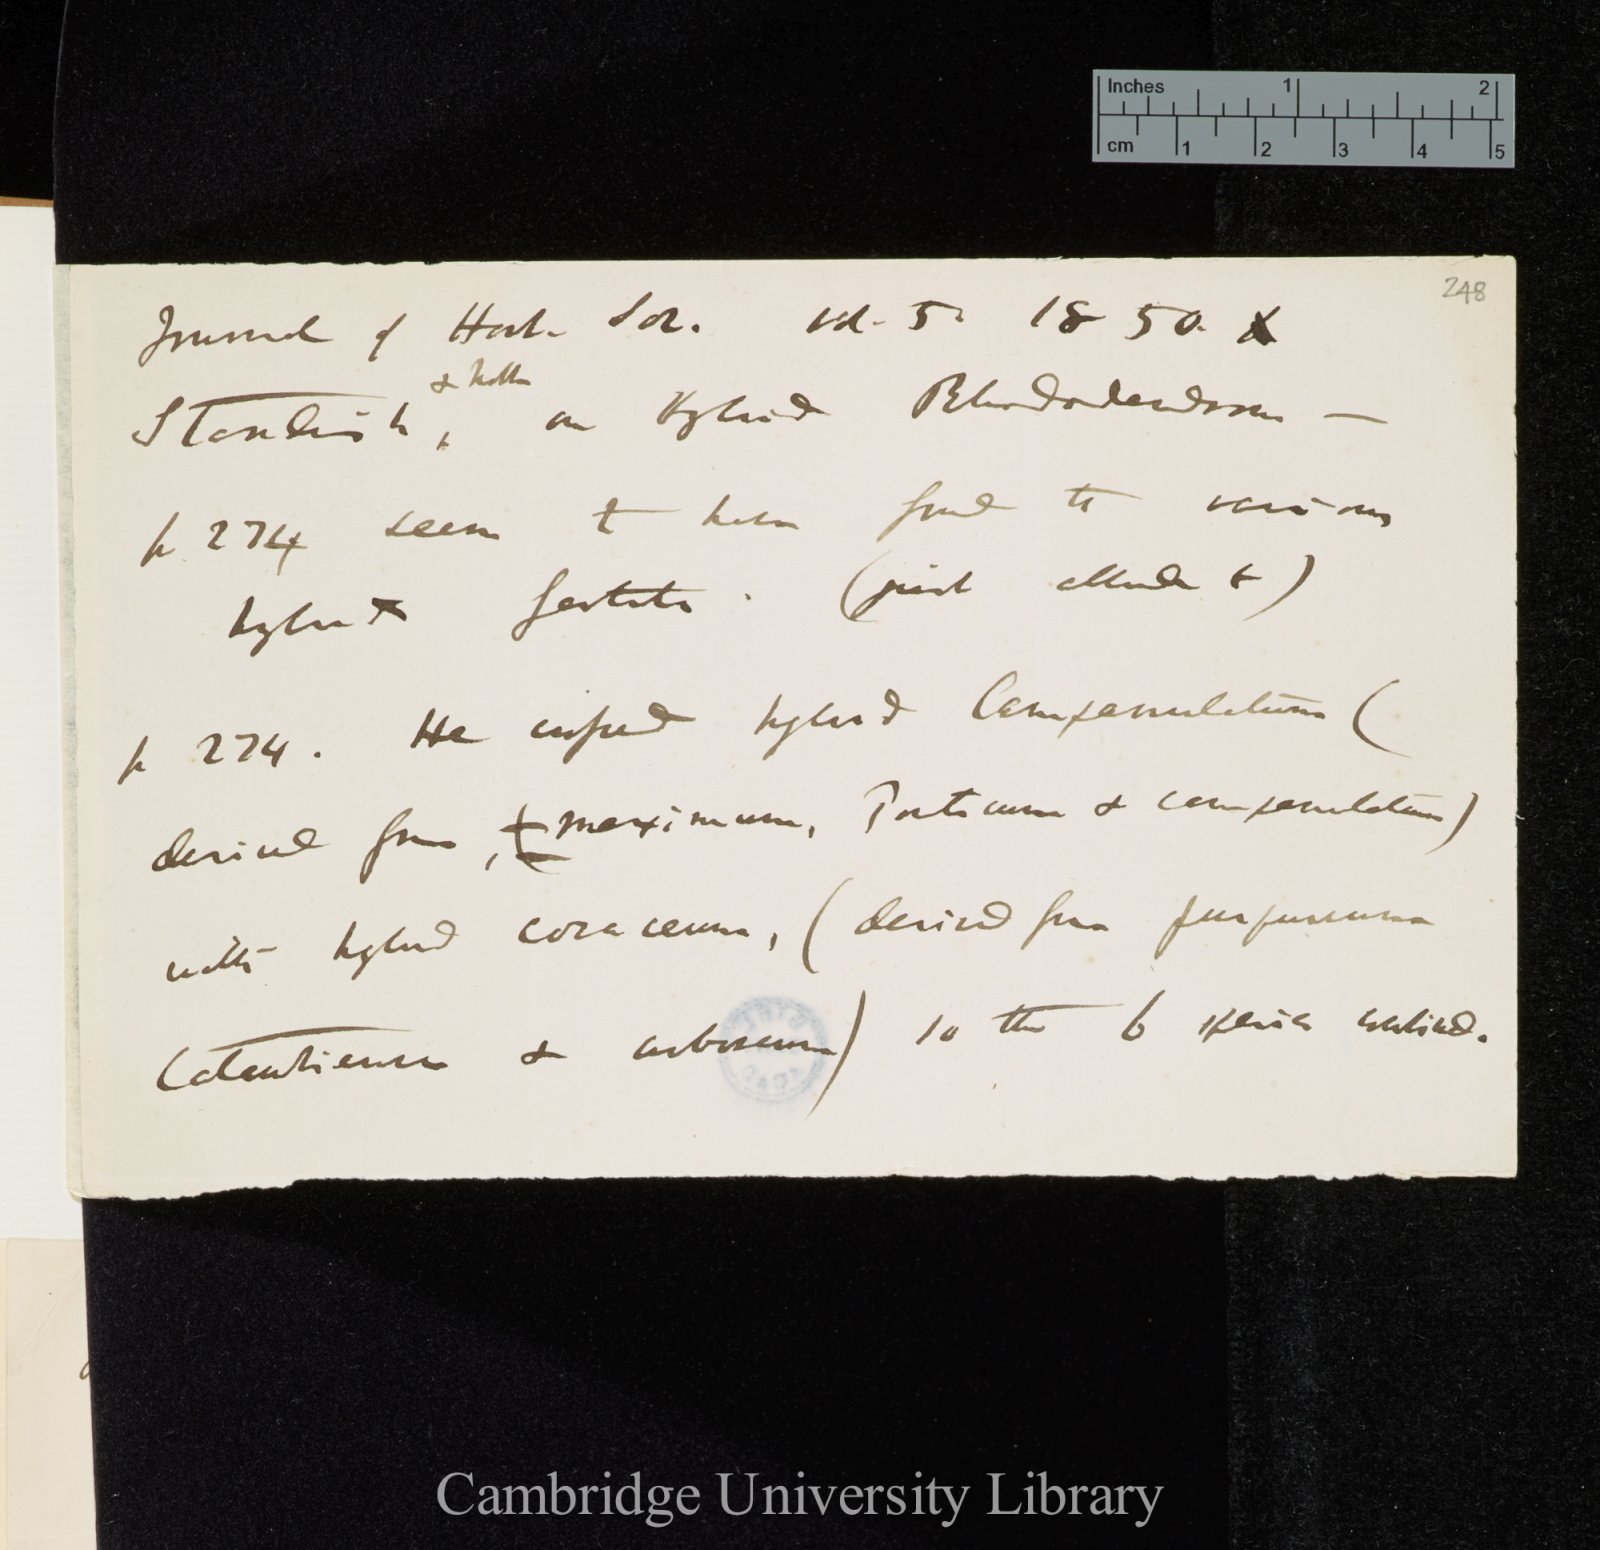 Inches 1 2
cm 1 2 3 4 5
248
Journal of Hort. Soc. vol. 5. 1850.
& Noble
Standish, on Hybrid Rhododendrons —
p 274 seem to have found the various
hybrids fertile. (just allude to)
p 274. He crossed hybrid Campanulatum (
derived from, maximum, Ponticum & campanulatum)
with hybrid coraceum, (derived from purpureum
Catawbiense & arboreum) so the 6 species
Cambridge University Library